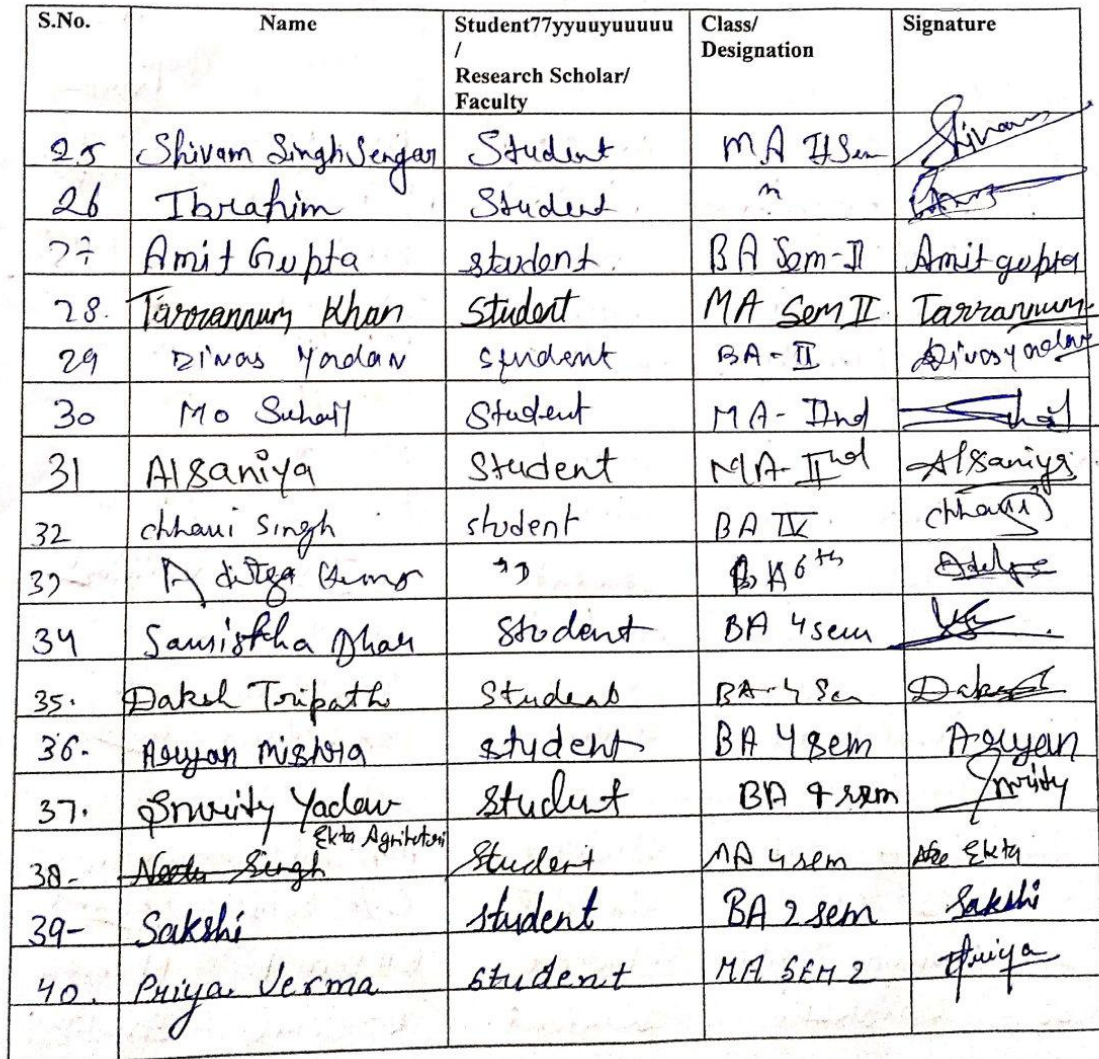 S.No. Name Student77yyuuyuuuuu Class/ Signature
/ Designation
Research Scholar/
Faculty
25 Shivam Singh Sengar Student MA II Sem Shivam
26 Ibrahim Student "
27 Amit Gupta student BA Sem-II Amit gupta
28. Tarrannum Khan Student MA Sem II Tarrannum
29 Divas Yadav student BA-II Divas yadav
30 Mo Suhail Student MA-IInd
31 Alsaniya Student MA-IInd Alsaniya
32 chhavi Singh student BA IV chhavi
33 Aditya " BA 6th
34 Student BA 4 sem
35. Daksh Tripathi Student BA-4 Sem Daksh
36. Aryan Mishra student BA 4 sem Aryan
37. Smrity Yadav Student BA 4 sem Smrity
Ekta
38- Neetu Singh Student MA 4 sem Ekta
39- Sakshi student BA 2 sem Sakshi
40. Priya Verma student MA SEM 2 Priya